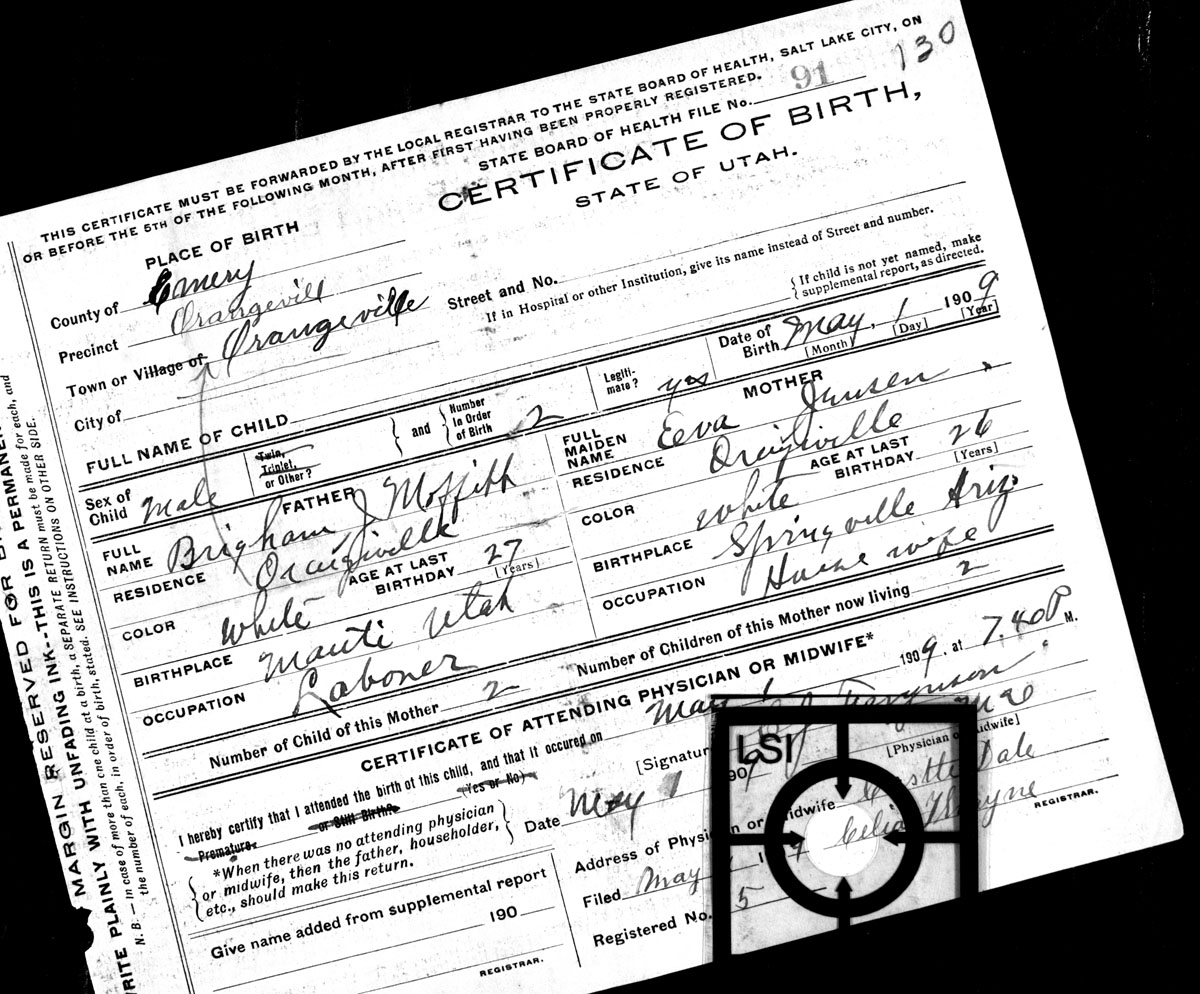 THIS CERTIFICATE MUST BE FORWARDED BY THE LOCAL REGISTRAR TO THE STATE BOARD OF HEALTH, SALT LAKE CITY, ON
OR BEFORE THE 5TH OF THE FOLLOWING MONTH, AFTER FIRST HAVING BEEN PROPERLY REGISTERED.
130
STATE BOARD OF HEALTH FILE No. 91
CERTIFICATE OF BIRTH,
STATE OF UTAH.
PLACE OF BIRTH
County of Emery
Precinct Orangevill
Town or Village of Orangeville
City of
Street and No.
If in Hospital or other Institution, give its name instead of Street and number.
FULL NAME OF CHILD
If child is not yet named, make
supplemental report, as directed.
Sex of Child Male
Twin, Triplet, or Other?
and
Number In Order of Birth 2
Legiti-mate? yes
Date of Birth May 1 1909
[Month] [Day] [Year]
FATHER
FULL NAME Brigham J Moffitt
RESIDENCE Orangiville
COLOR White
AGE AT LAST BIRTHDAY 27
[Years]
BIRTHPLACE Manti Utah
OCCUPATION Laborer
MOTHER
FULL MAIDEN NAME Eeva Jensen
RESIDENCE Orangiville
COLOR White
AGE AT LAST BIRTHDAY 26
[Years]
BIRTHPLACE Springville Ariz.
OCCUPATION House wife
Number of Child of this Mother 2
Number of Children of this Mother now living 2
CERTIFICATE OF ATTENDING PHYSICIAN OR MIDWIFE*
I hereby certify that I attended the birth of this child, and that it occured on May 1 1909, at 7.40 P M.
Premature. or Still Birth? (Yes or No)
*When there was no attending physician
or midwife, then the father, householder,
etc., should make this return.
[Signatur
[Physician or Midwife]
Date May 1 190
Address of Physician or Midwife Castle Dale
Give name added from supplemental report
190
REGISTRAR.
Filed May
REGISTRAR.
Registered No. 5
LSI
MARGIN RESERVED FOR
WRITE PLAINLY WITH UNFADING INK--THIS IS A PERMANEN
N. B. — In case of more than one child at a birth, a SEPARATE RETURN must be made for each, and
the number of each, in order of birth, stated. SEE INSTRUCTIONS ON OTHER SIDE.